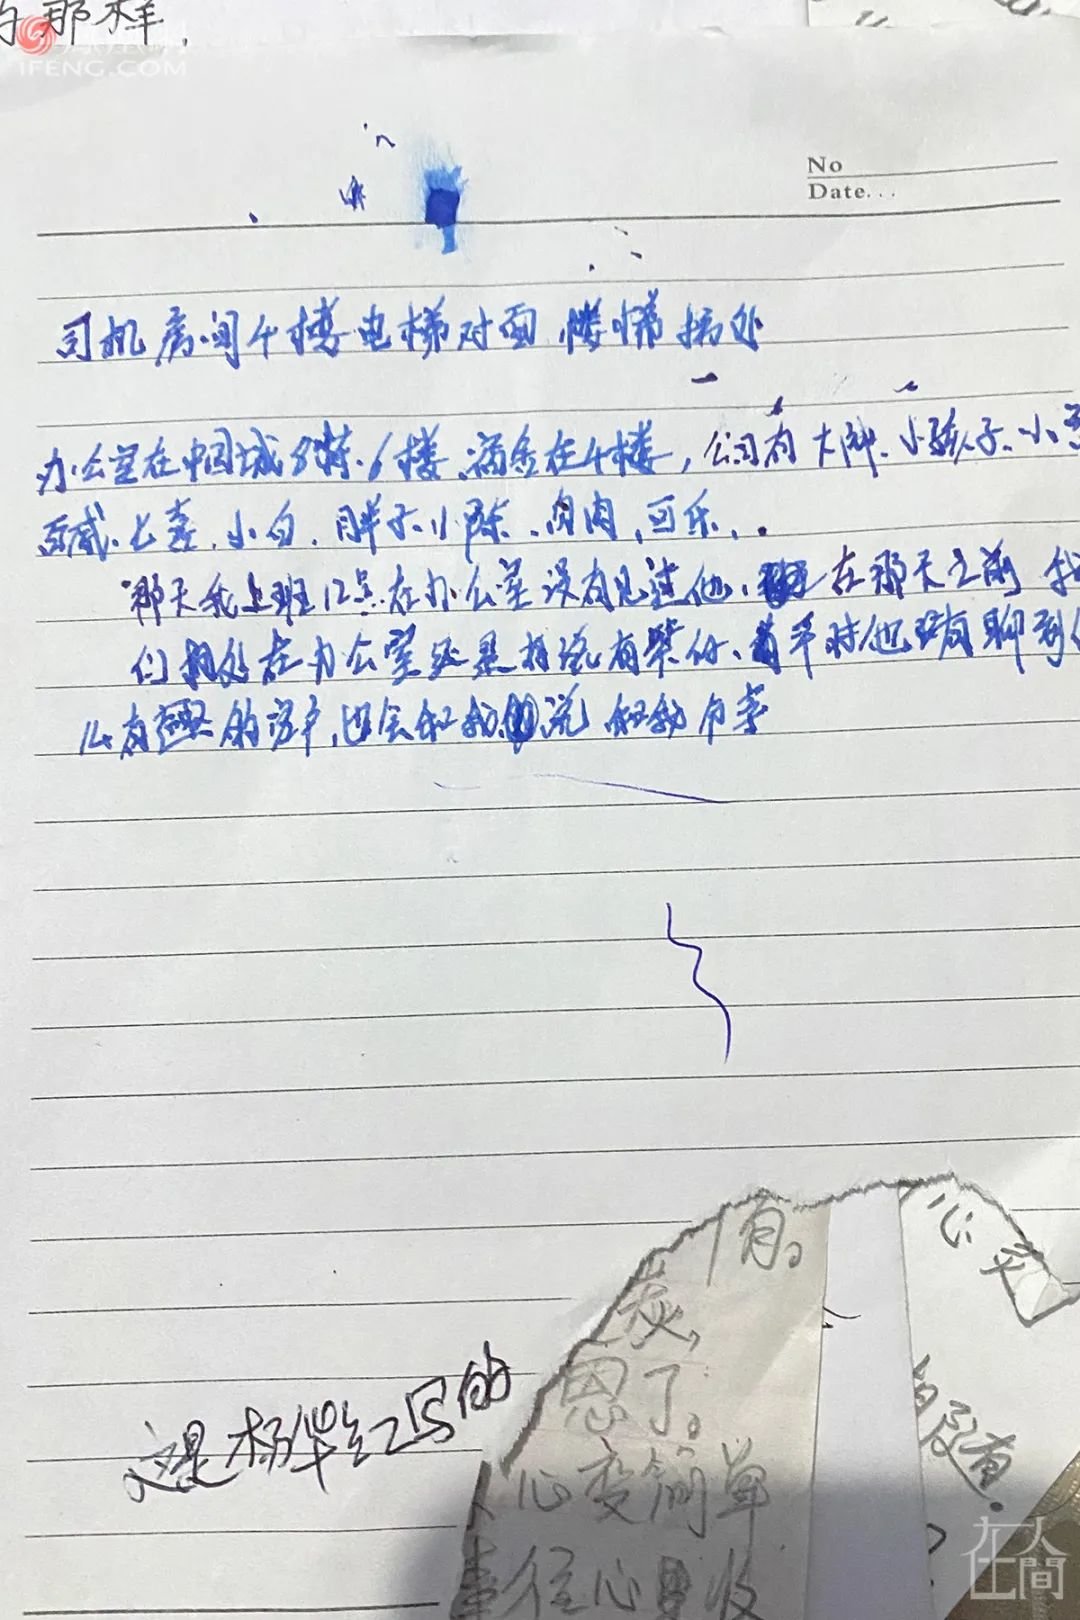 的那样.
IFENG.COM
No
Date...
司机房间4楼电梯对面,楼梯拐处
办公室在中国城8栋.6楼.宿舍在4楼,公司有大帅.小孩子.小
百威.七喜.小白.胖子.小陈.肉肉.可乐..
那天我上班12点在办公室没有见过他.在那天之前我
们相处在办公室还是有说有笑的.有平时他没有聊到什
么有趣的客户,也会和我说 和我分享
这是杨华红写的
有。
心灵
炭,
恩了。
的没有.
人心变简单
事往心里收
在人間